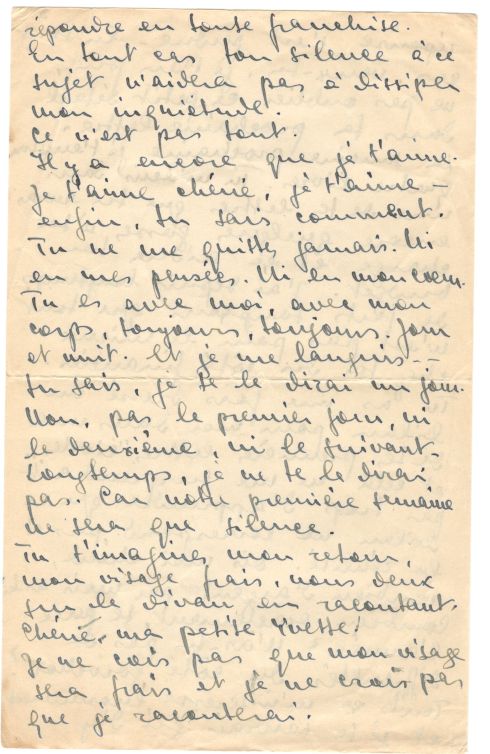 répondre en toute franchise.
En tout cas ton silence à ce
sujet n'aidera pas à dissiper
mon inquiétude.
Ce n'est pas tout.
Il y a encore que je t'aime.
Je t'aime chérie, je t'aime –
enfin, tu sais comment.
Tu ne me quittes jamais. Ni
en mes pensées. Ni en mon coeur.
Tu es avec moi, avec mon
corps, toujours, toujours. Jour
et nuit. Et je me languis --
tu sais, je te le dirai un jour.
Non, pas le premier jour, ni
le deuxième, ni le suivant-
Longtemps, je ne te le dirai
pas. Car notre première semaine
ne sera que silence.
Tu t'imagines mon retour,
mon visage frais, nous deux
sur le divan en racontant.
Chérie, ma petite Yvette!
Je ne cois pas que mon visage
sera frais et je ne crois pas
que je raconterai.